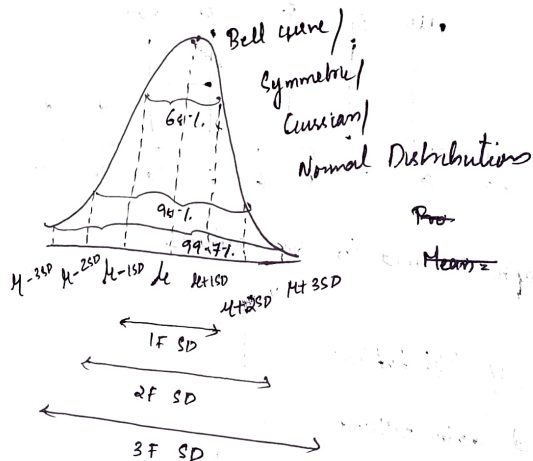 Bell curve/
Symmetric/
Gaussian/
Normal Distribution
68%
95%
99.7%
Pro
Mean =
μ-3SD μ-2SD μ-1SD μ μ+1SD μ+2SD μ+3SD
1F SD
2F SD
3F SD